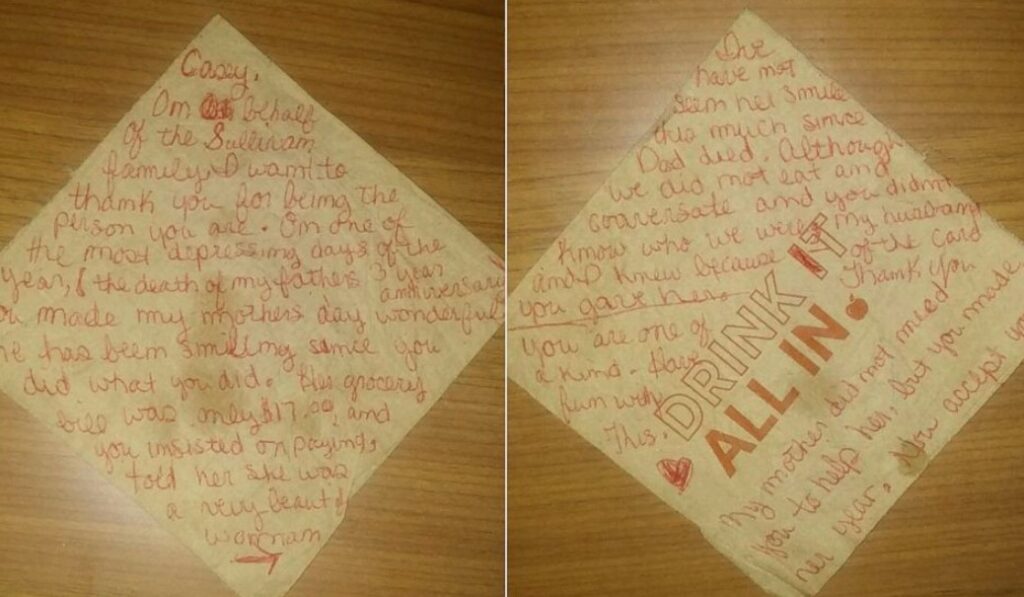 Casey,
On behalf
of the Sullivan
family, I want to
thank you for being the
person you are. On one of
the most depressing days of the
year, & the death of my fathers 3 year
anniversary
you made my mothers day wonderful
he has been smiling since you
did what you did. Her grocery
bill was only $17.00, and
you insisted on paying,
told her she was
a very beautiful
womnam
I've
have not
seen her smile
this much since
Dad died. Although
we did not eat and
conversate and you didn't
know who we were, my husband
and I knew because of the card
you gave her. Thank you
you are one of
a kind. Have
fun with
This.
DRINK IT
ALL IN.
My mother did not need
you to help her, but you made
her year.
accept